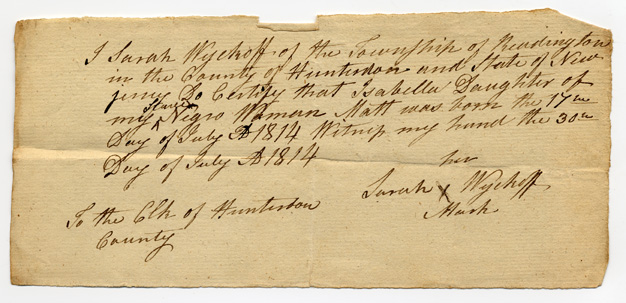 I Sarah Wyckoff of the Township of Readington
in the County of Hunterdon and State of New
jersey Do Certify that Isabella Daughter of
my ^ Negro Woman Matt was born the 17th
Day of July AD 1814 Witness my hand the 30th
Day of July AD 1814
her
Sarah X Wyckoff
Mark
To the Clk of Hunterdon
County